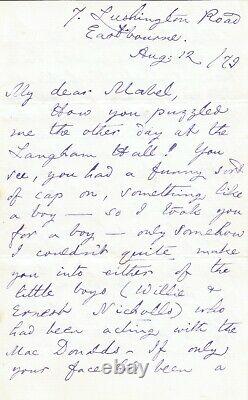 7. Lushington Road
Eastbourne.
Aug: 12/79
My dear Mabel,
How you puzzled
me the other day at the
Langham Hall! You
see, you had a funny sort
of cap on, something like
a boy — so I took you
for a boy — only somehow
I couldn't quite make
you into either of the
little boys (Willie &
Ernest Nicholls) who
had been acting with the
Mac Donalds — If only
your face had been a